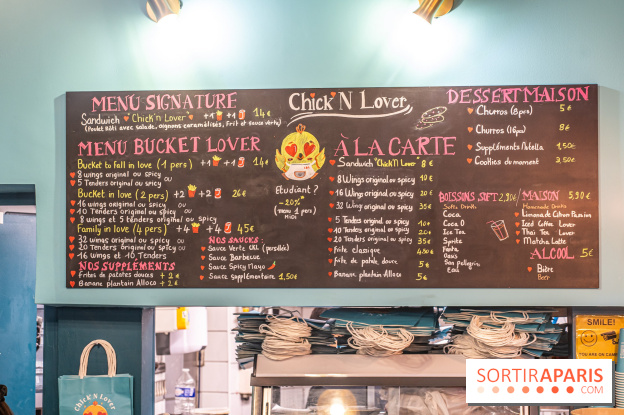 MENU SIGNATURE
Sandwich "Chick'n Lover" +1 +1 14€
(Poulet Rôti avec salade, oignons caramélisés, frit et sauce verte)
MENU BUCKET LOVER
Bucket to fall in love (1 pers) +1 +1 14€
8 wings original ou spicy ou
5 Tenders original ou spicy
Bucket in love (2 pers) +2 +2 26€
16 wings original ou spicy ou
10 Tenders original ou spicy ou
8 wings et 5 tenders original ou spicy
Family in love (4 pers) +4 +4 45€
32 wings original ou spicy ou
20 Tenders original ou spicy ou
16 wings et 10 Tenders
NOS SUPPLÉMENTS
Frites de patates douces + 2€
Banane plantain Alloco + 2€
NOS SAUCES:
Sauce Verte (persillée)
Sauce Barbecue
Sauce Spicy Mayo
Sauce supplémentaire 1,50€
Chick'N Lover
Etudiant?
-20%
(menu 1 pers)
MIDI
À LA CARTE
Sandwich "Chick'N Lover" 8€
8 Wings original ou spicy 10€
16 Wings original ou spicy 20€
32 Wings original ou spicy 35€
5 Tenders original ou spicy 10€
10 Tenders original ou spicy 20€
20 Tenders original ou spicy 35€
Frite classique 4,50€
Frite de patate douce 5€
Banane plantain Alloco 5€
DESSERT MAISON
Churros (8pcs) 5€
Churros (16pcs) 8€
Suppléments Nutella 1,50€
Cookies du moment 3,50€
BOISSONS SOFT 2,50€/MAISON 5,90€
Soft Drinks
Coca
Coca 0
Ice Tea
Sprite
Fanta
Oasis
San pellegrin
Eau
Homemade Drinks
Limonade Citron Passion
Iced Coffee Lover
Thai Tea Lover
Matcha Latte
ALCOOL 5€
Bière
Beer
SMILE!
YOU'RE ON CAMERA
CHICK'N LOVER
SORTIRAPARIS
.COM